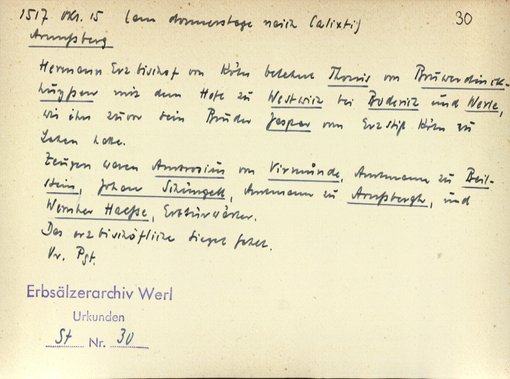 30
1517 Okt. 15 (am donnerstage naich Calixti)
Arnsberg
Hermann Erzbischof von Köln belehnt Thonis von Bruwerdinck-
huysen mit dem Hofe zu Westwick bei Buderick und Werle,
wie ihn zuvor sein Bruder Jaspar vom Erzstift Köln zu
Lehen hatte.
Zeugen waren Ambrosius von Virmunde, Amtmann zu Beil-
stein, Johan Schüngell, Amtmann zu Arnsbergh, und
Wernher, Erbtürwärter.
Das erzbischöfliche Siegel fehlt.
Or. Pgt.
Erbsälzerarchiv Werl
Urkunden
St Nr. 30